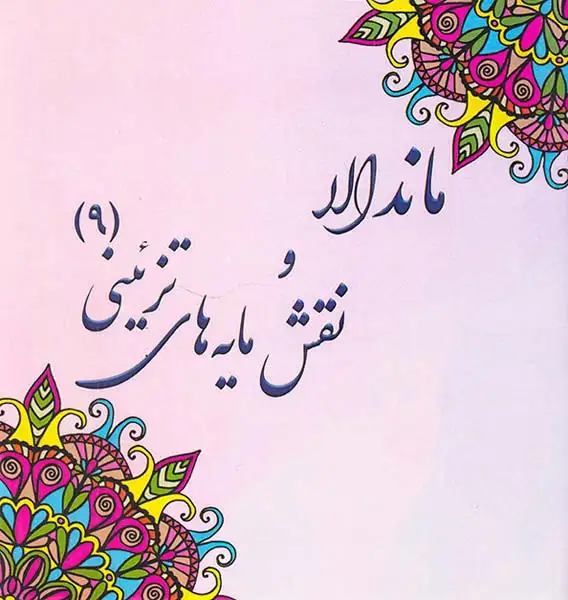 ماندالا
و
نقش مایه های تزئینی (۹)